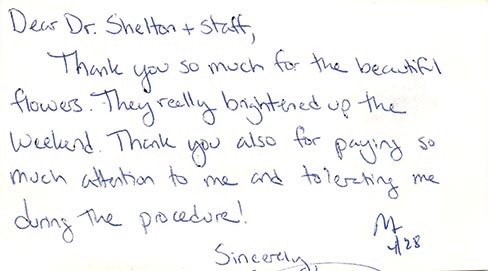 Dear Dr. Shelton + staff,
Thank you so much for the beautiful
flowers. They really brightened up the
weekend. Thank you also for paying so
much attention to me and tolerating me
during the procedure!
4/28
Sincerely